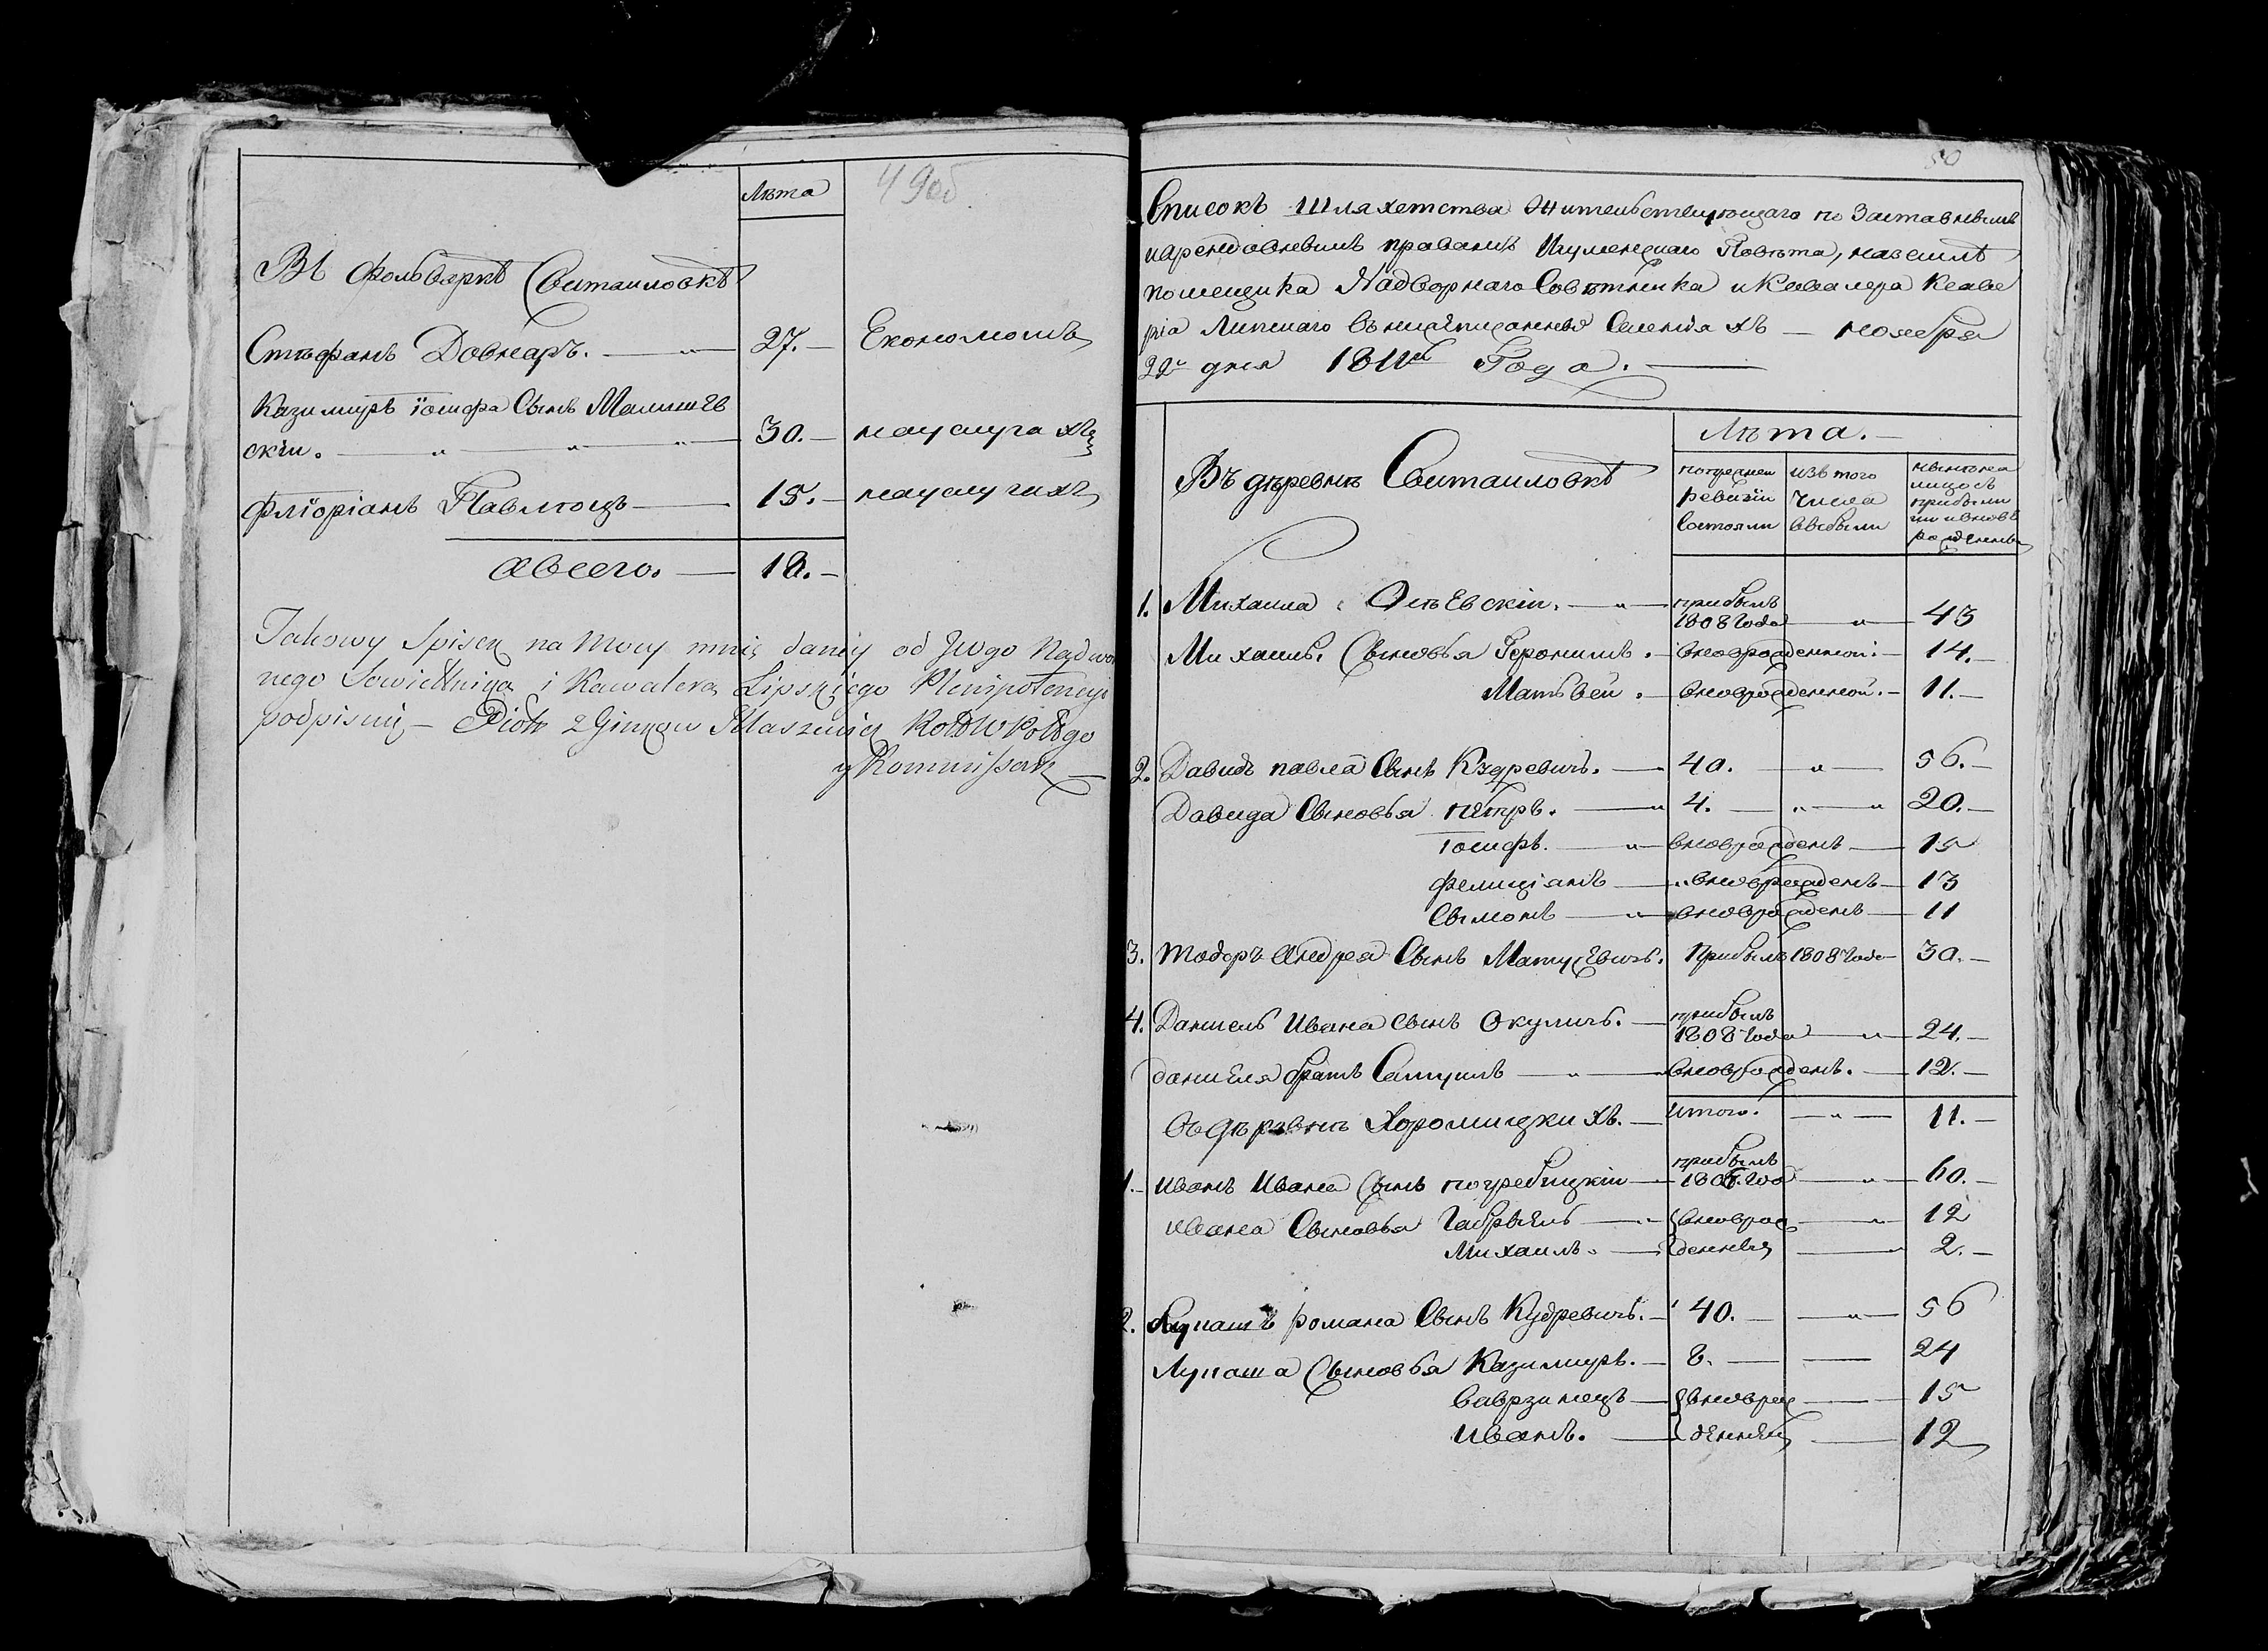 Лѣта
49об.
Въ фольваркѣ Свитаиловкѣ
Стѣфанъ Довнаръ. 27. Економомъ
Казимиръ Іосифа Сынъ Малишев
скій. 30. на услугахъ
Флiоріанъ Павлюць 15. на услугахъ
а всего. 18.
Takowy Spisek na Mocy mnie daney od JWgo Nadwor
nego Sowietnika i Kawalera Lipskiego Plenipotencyi
podpisuię Piotr z
Kommissarz
50
Списокъ Шляхетства Жительствующаго по Заставнымъ
и арендовнымъ правамъ Игуменскаго Повѣта, на земли
помещика Надворнаго Совѣтника и Кавалера Ксаве
рія Липскаго въ нижеписанныхъ Селенияхъ ноября
22го дня 1811го Года.
Лѣта.
Въ дѣревнѣ Свитаиловкѣ
по предней ревизіи Состояли
изъ того числа выбыли
ныне на лицо съ прибылими и вновь рожденны
1. Михаила Осѣевскій. прибылъ 1808 Года 43
Михаила Сыновья Геронимъ. вновророжденной. 14.
Матвей. вноврожденной. 11.
2. Давидъ павла Сынъ Кудревичъ. 40. 56.
Давида Сыновья пётръ. 4. 20.
Іосифъ. вноврожденъ 15
Фелиціянъ вноврожденъ 13
Сымонъ вноврожденъ 11
3. Тодоръ Андрея Сынъ Матусевичъ. Прибылъ 1808 Года 30.
4. Даниель Ивана Сынъ Окуличъ. прибылъ 1808 Года 24.
даниеля братъ Самуилъ вноврожденъ. 12.
Въ дѣревнѣ Хоромицкихъ. Итого. 11.
1. Иванъ Ивана Сынъ погребицкій прибылъ 1806. Год 60.
Ивана Сыновья Габрыель вноврож 12
Михаилъ. денныя 2.
2. Лупашъ романа Сынъ Кудревичъ. 40. 56
Лупаша Сыновья Казимиръ. 8. 24
Ваврзинець вноврож 15
Иванъ. денныя 12